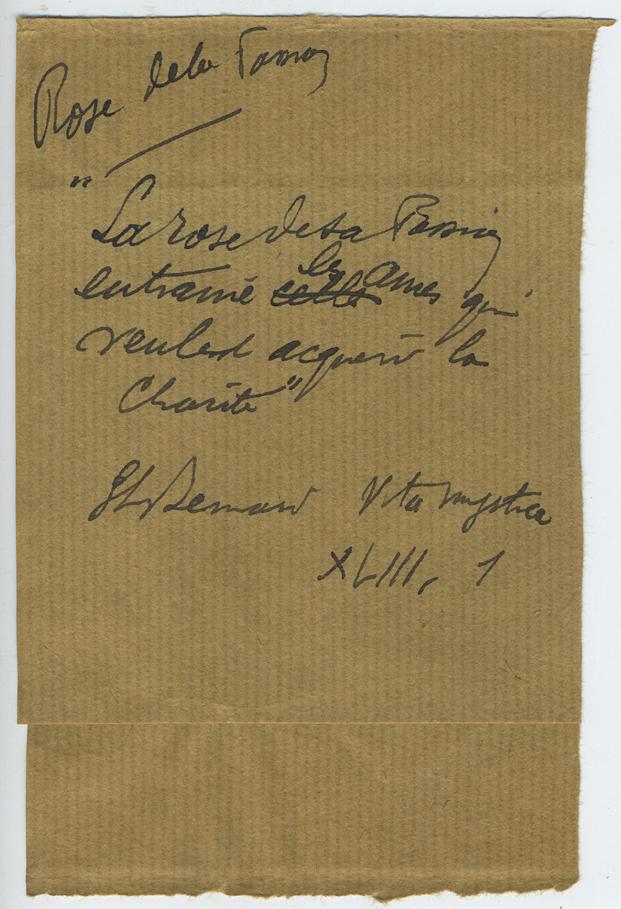 Rose de la Passion
"
La rose de sa Passion
entraine les ames qui
veulent acquerir la
Charité"
St Bernard Vita mystica
XLIII, 1